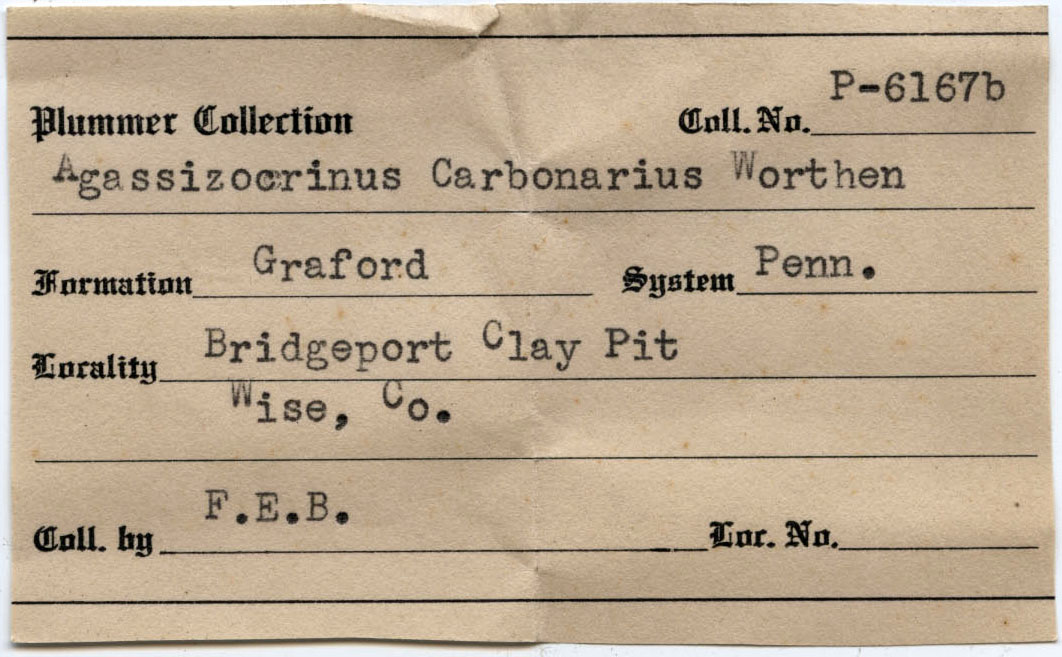 Plummer Collection Coll. No. P-6167b
Agassizocrinus Carbonarius Worthen
Formation Graford System Penn.
Locality Bridgeport Clay Pit
Wise, Co.
Coll. by F.E.B. Loc. No.